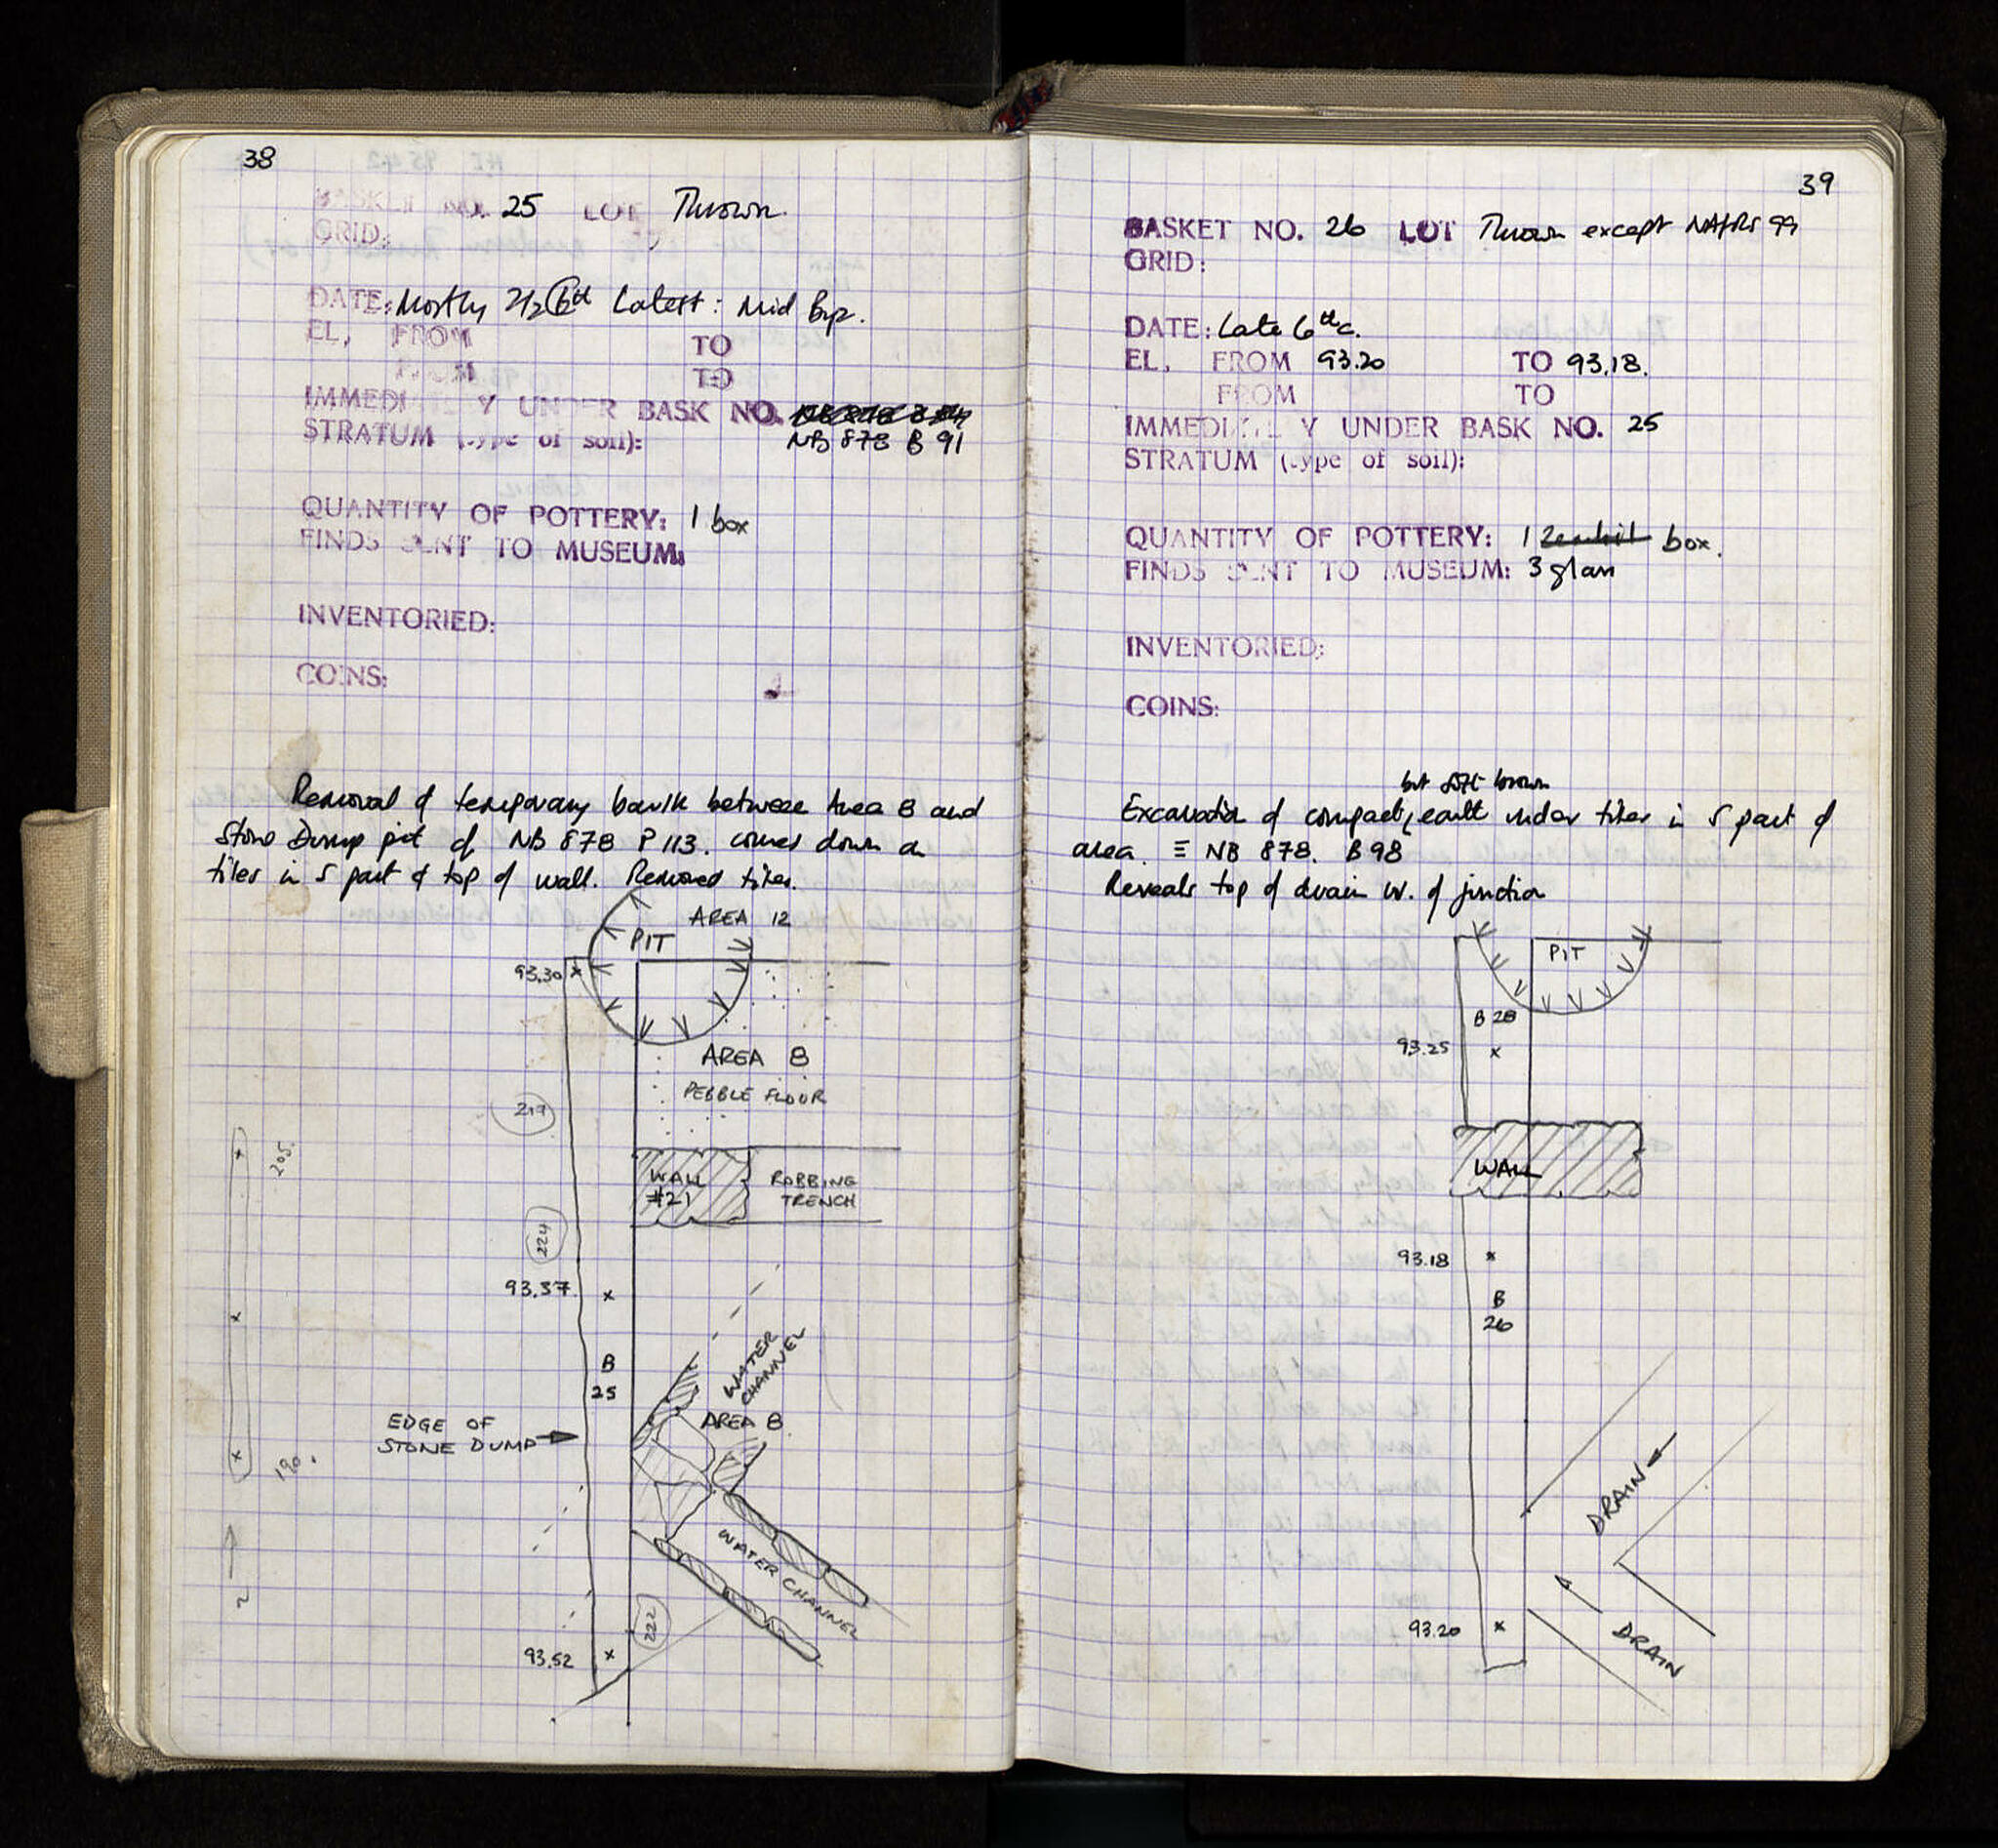 38
BASKET NO. 25 LOT Thrown.
GRID:
DATE: Mostly 2/2 6th Latest: Mid Byz.
EL, FROM TO
FROM TO
IMMEDI Y UNDER BASK NO.
STRATUM (type of soil): NB 878 B 91
QUANTITY OF POTTERY: 1 box
FINDS SENT TO MUSEUM:
INVENTORIED:
COINS:
Removal of temporary baulk between Area 8 and
Stone Dump pit of NB 878 P 113. comes down on
tiles in S part & top of wall. Removed tiles.
AREA 12
PIT
93.30 x
AREA 8
PEBBLE FLOOR
219
205.
WALL
#21
ROBBING
TRENCH
224
93.37 x
WATER
CHANNEL
B
25
AREA 8
EDGE OF
STONE DUMP
190.
WATER CHANNEL
222
93.52 x
39
BASKET NO. 26 LOT Thrown except NAfRS 99
GRID:
DATE: Late 6th c.
EL, FROM 93.20 TO 93.18.
FROM TO
IMMEDI L Y UNDER BASK NO. 25
STRATUM (type of soil):
QUANTITY OF POTTERY: 1 box.
FINDS SENT TO MUSEUM: 3 glass
INVENTORIED:
COINS:
but soft brown
Excavation of compact, earth under tiles in S part of
area. ≡ NB 878. B 98
Reveals top of drain W. of junction
PIT
B 28
93.25 x
WALL
93.18 x
B
26
DRAIN
93.20 x
DRAIN